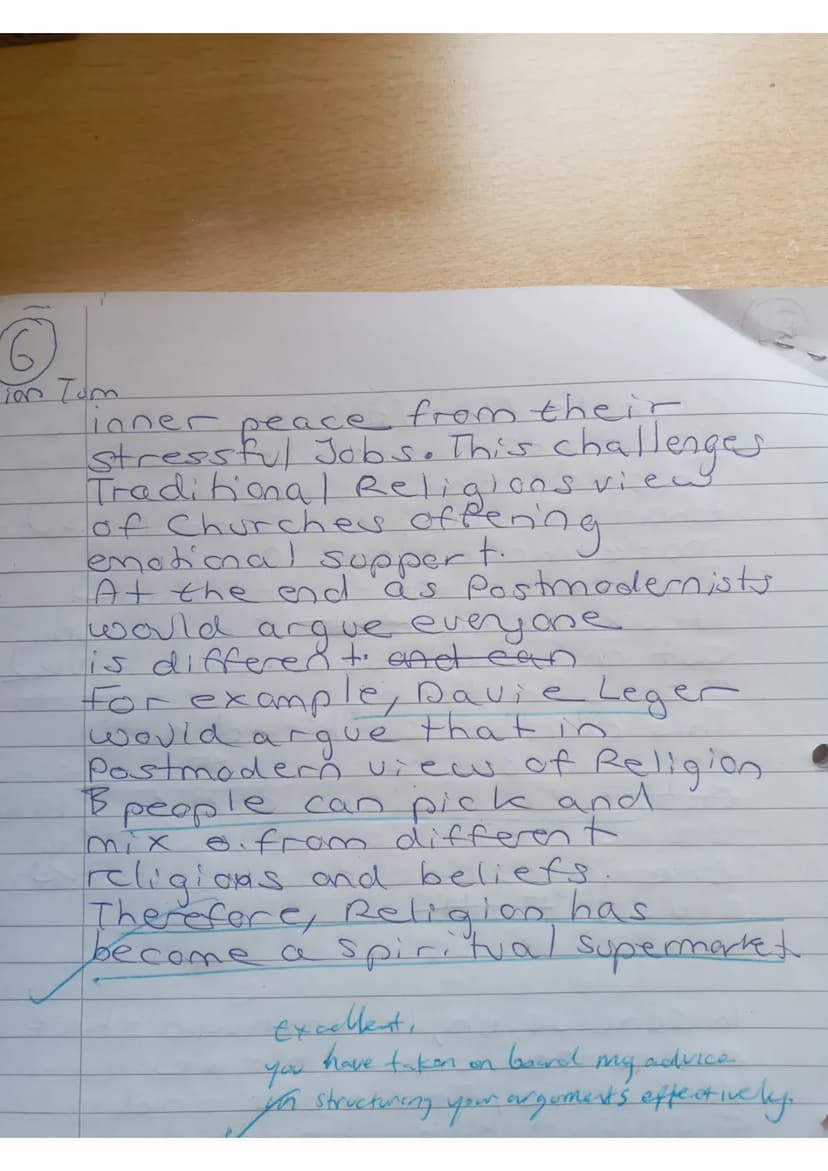 6
ion Tom
inner peace from their
stressful Jobs. This challenges
Traditional Religions view
of Churches offering
emotional support.
At the end as Postmodernists
would argue everyone
is different. and can
For example, Davie Leger
would argue that in
Postmodern view of Religion
people can pick and
mix from different
religions and beliefs.
Therefore, Religion has
become a spiritual supermarket
Excellent,
you have taken on board my advice
in structuring your arguments effectively.